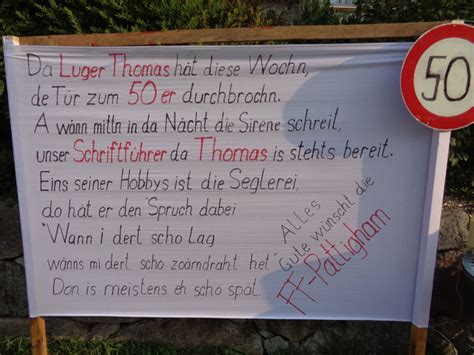 Da Luger Thomas hat diese Wochn,
de Tür zum 50er durchbrochn.
A wånn mittn in da Nåcht die Sirene schreit,
unser Schriftführer da Thomas is stehts bereit.
Eins seiner Hobbys ist die Seglerei,
do håt er den Spruch dabei
"Wann i dert scho Låg
wånns mi dert scho zoåmdraht het"
Don is meistens eh scho spät.
Alles
Gute wünscht die
FF-Pattigham
50